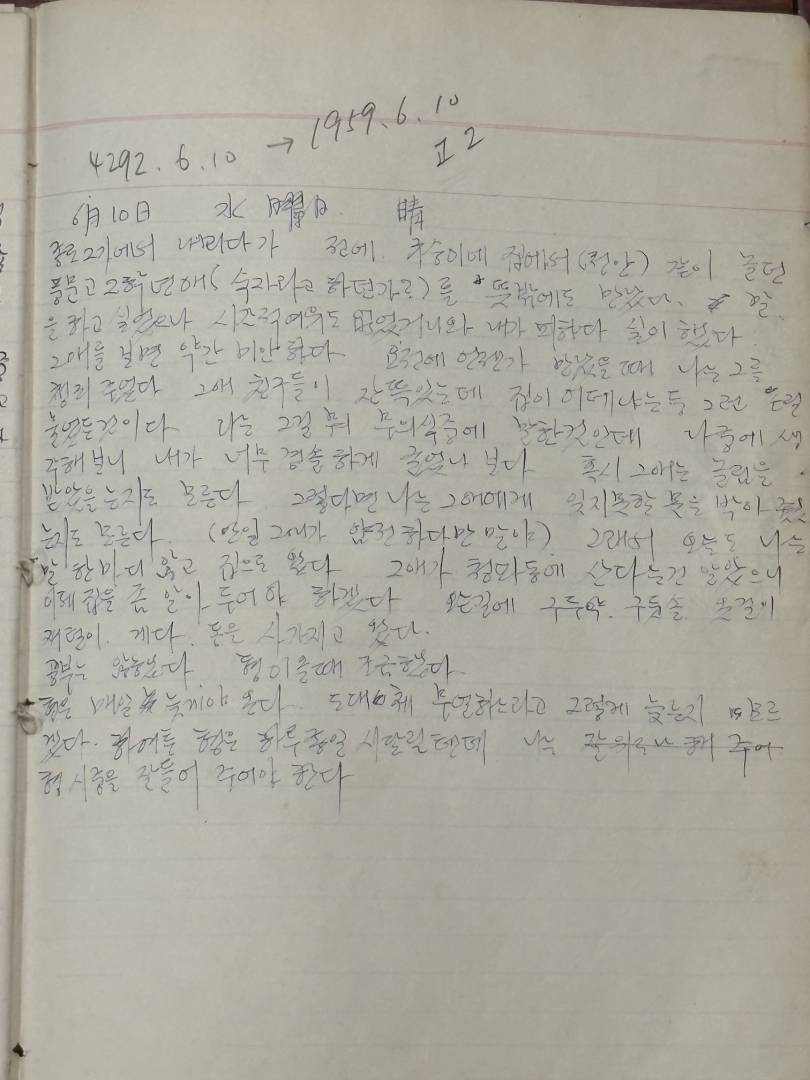 4292.6.10 → 1959.6.10
고2
6月 10日 水曜日. 晴
종로2가에서 내리다가 전에 집에서(천안) 같이 놀던
풍문고 2학년애(숙자라고 하던가로)를 뜻밖에도 만났다. 말
을 하고 싶었으나 시간적여유도 없었거니와 내가 피하다 싶이 했다
그애를 보면 약간 미안하다 요전에 언젠가 만났을때 나는 그를
주었다 그애 친구들이 잔뜩있는데 집이 어데냐는둥 그런
것이다 나는 그걸 뭐 무의식중에 말한것인데 나중에 생
각해보니 내가 너무 경솔하게 보다 혹시 그애는 놀림을
받았을는지도 모른다 그렇다면 나는 그애에게 잊지못할 못을 박아 줬
는지도 모른다. (만일 그애가 얌전하다면 말야) 그래서 오늘도 나는
말 한마디 않고 집으로 왔다 그애가 청파동에 산다는건 알았으니
이제 집을 좀 알아 두어야 하겠다 오는길에 구두약. 구둣솔 옷걸이
재털이. 게다. 돈은 사가지고 왔다.
공부는 않했다 형이 올때 조금했다
형은 매일 늦게야 온다 도대체 무얼하느라고 그렇게 늦는지 모르
겠다. 하여튼 형은 하루종일 시달릴텐데 나는 잘 위로나 해 주어
형 시중을 잘들어 주어야 한다